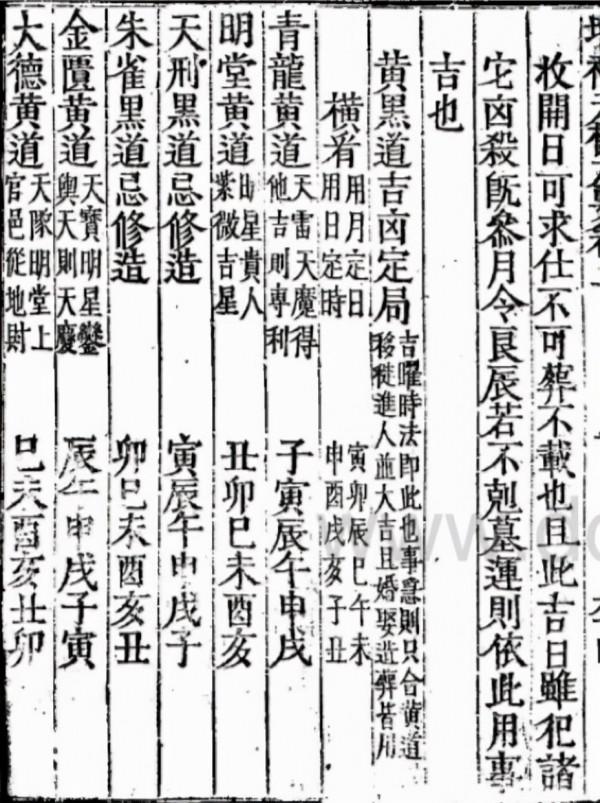 收開日可求仕不可葬不載也且此吉日雖犯諸
宅凶殺旣叅月令良辰若不剋墓運則依此用事
吉也
黃黑道吉凶定局
吉曜時法即此也事急則只合黃道
移徙進人並大吉且婚娶造葬皆用
橫看
用月定日
用日定時
寅卯辰巳午未
申酉戌亥子丑
青龍黃道
天雷天魔得
他吉則專利
子寅辰午申戌
明堂黃道
明星貴人
紫微吉星
丑卯巳未酉亥
天刑黑道忌修造
寅辰午申戌子
朱雀黑道忌修造
卯巳未酉亥丑
金匱黃道
天寶明星鑾
輿天則天慶
辰午申戌子寅
大德黃道
天隊明堂上
官邑從地財
巳未酉亥丑卯